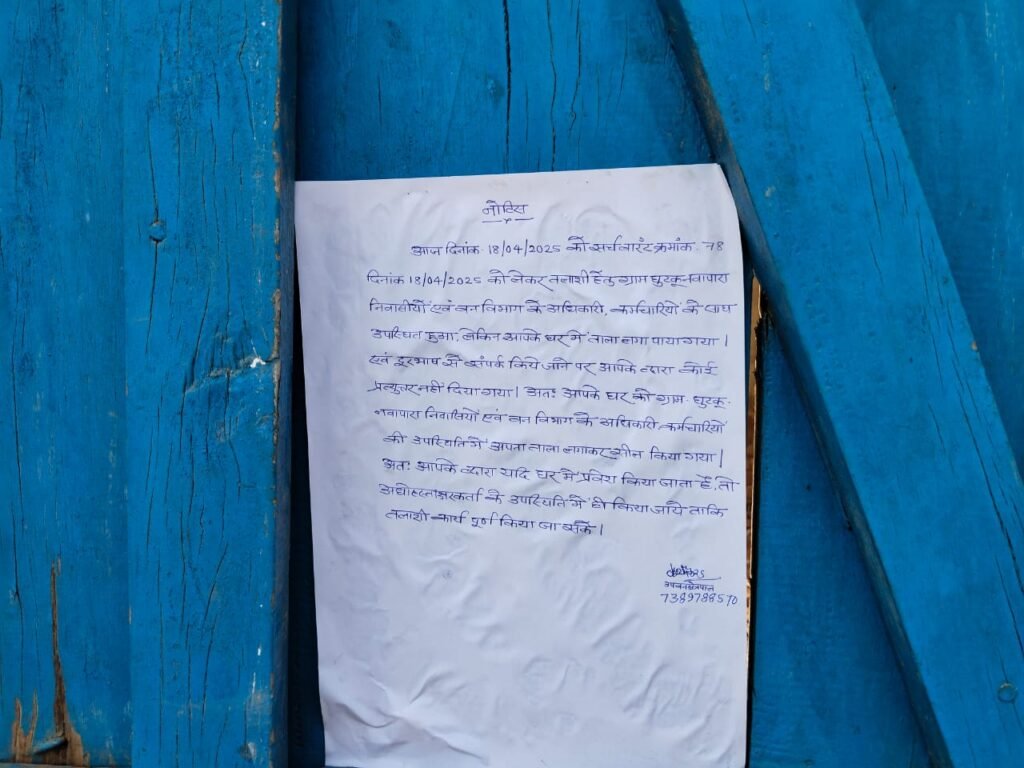 नोटिस
आज दिनांक 18/04/2025 को सर्च वारंट क्रमांक. 78
दिनांक 18/04/2025 को लेकर तलाशी हेतु ग्राम घुटकू-नवापारा
निवासीयों एवं वन विभाग के अधिकारी, कर्मचारियों के साथ
उपस्थित हुआ, लेकिन आपके घर में ताला लगा पाया गया।
एवं दूरभाष से संपर्क किये जाने पर आपके द्वारा कोई
प्रत्युत्तर नहीं दिया गया। अतः आपके घर को ग्राम- घुटकू-
नवापारा निवासियों एवं वन विभाग के अधिकारी कर्मचारियों
की उपस्थिति में अपना ताला लगाकर सील किया गया।
अतः आपके द्वारा यदि घर में प्रवेश किया जाता है, तो
अधोहस्ताक्षरकर्ता के उपस्थिति में ही किया जाये ताकि
तलाशी कार्य पूर्ण किया जा सके।
उपवनक्षेत्रपाल
7389788570